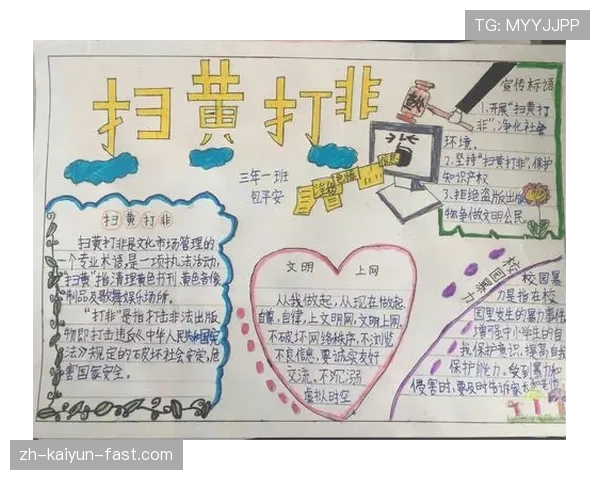 TG: MYYJJPP
扫黄打非
三年一班
包平安
宣传标语
1.开展“扫黄打
非”,净化社会
环境。
2.坚持“扫黄打非”,保护
知识产权
3.拒绝盗版出版
物争做文明公民。
扫黄打非
扫黄打非是文化市场管理的
一个专业术语,是一项执法活动,
“扫黄”指清理黄色书刊、黄色音像
制品及歌舞娱乐场所。
“打非”是指打击非法出版
物即打击违反《中华人民共和国宪
法》规定的破坏社会安定,危
害国家安全。
文明 上网
从我做起,从现在做起,
自尊,自律,上文明网,文明上网,
不破坏网络秩序,不浏览
不良信息、要诚实友好
交流,不沉溺
虚拟时空
校园暴力
校园暴
力是指在校
园里发生的暴力事件
增强中小学生的自
我保护意识,提高自我
保护能力。受到暴力和
侵害时,要及时告诉家长和老师
zh-kaiyun-fast.com